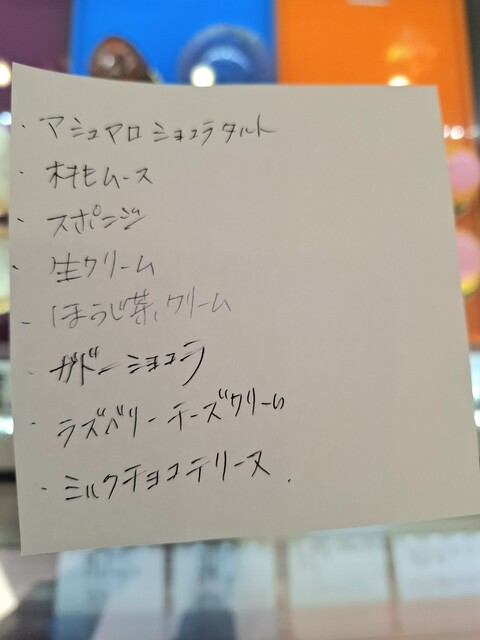 ・マシュマロショコラタルト
・桃ムース
・スポンジ
・生クリーム
・ほうじ茶クリーム
・ガトーショコラ
・ラズベリーチーズクリーム
・ミルクチョコテリーヌ.